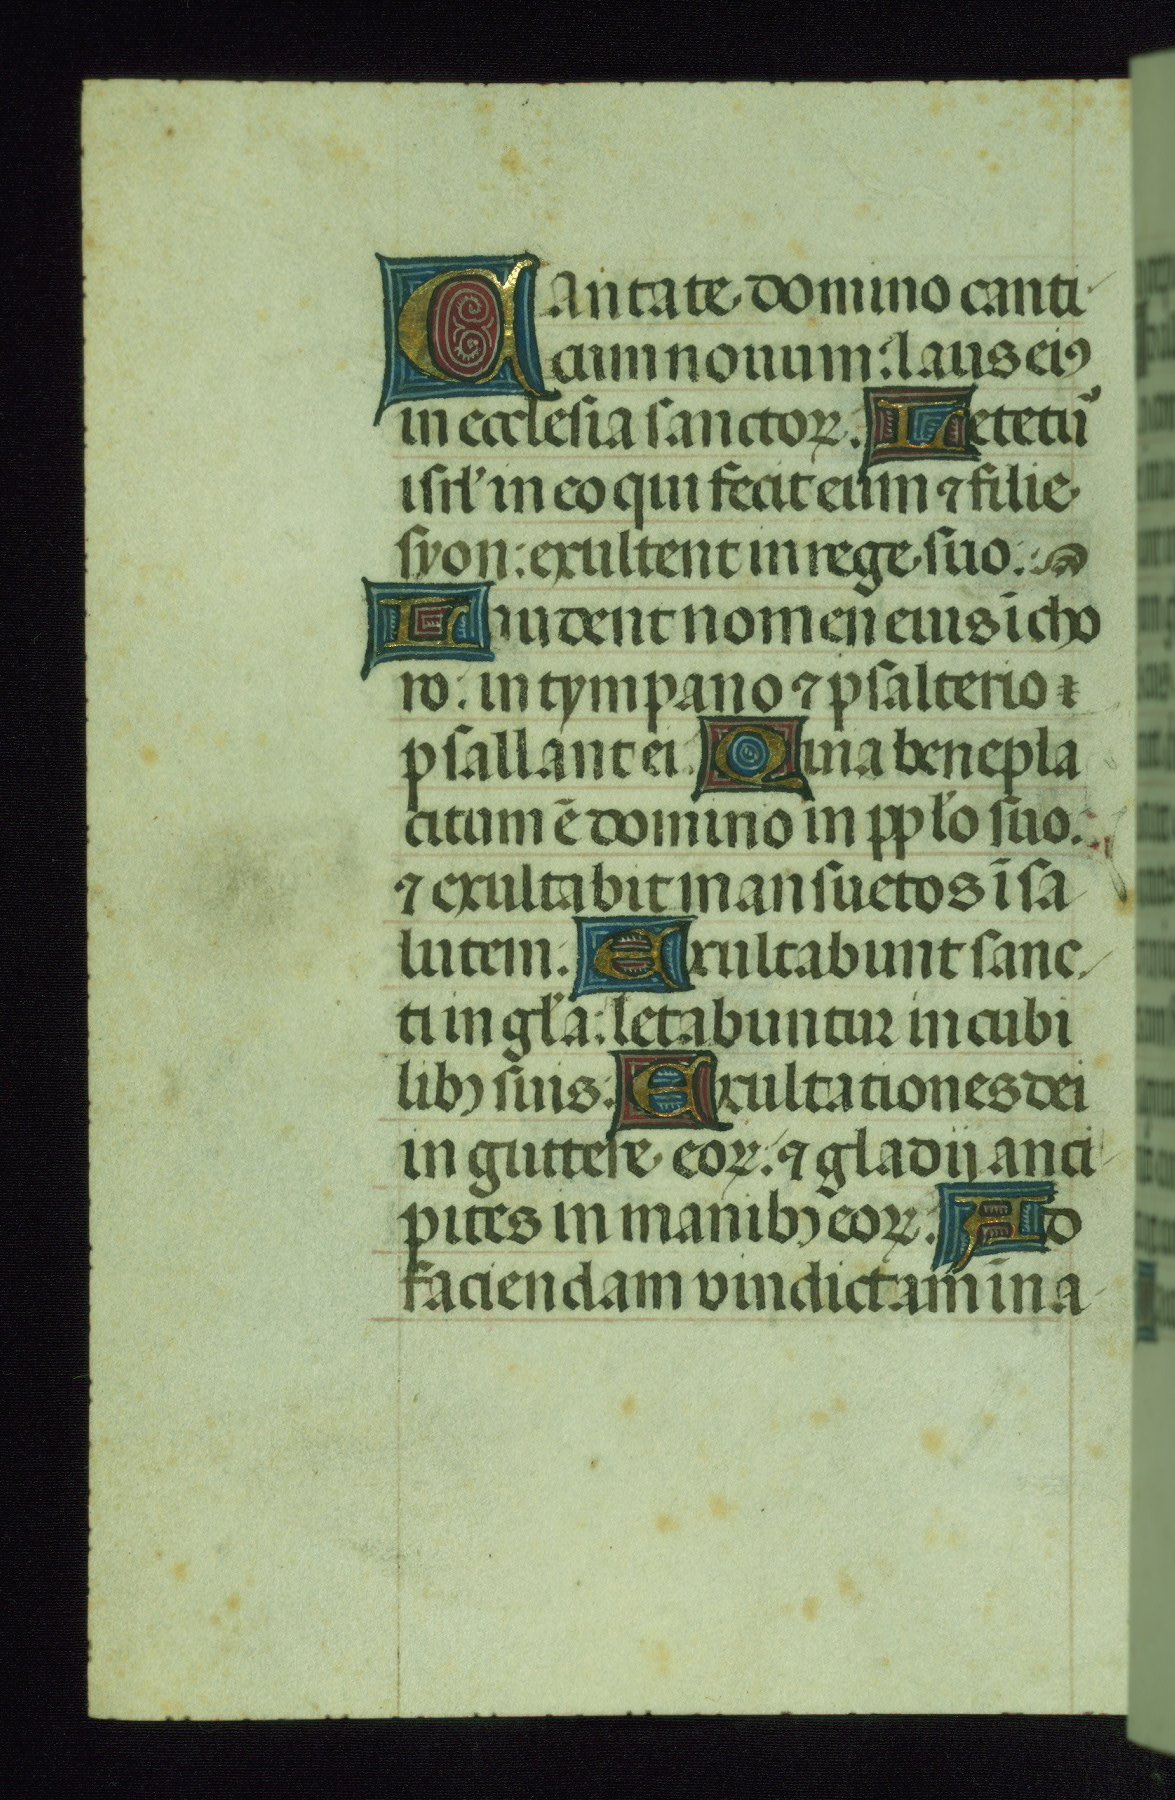 Cantate domino canti
cum nouum: laus eiꝰ
in ecclesia sanctoꝝ. Letetu᷑
isrl' in eo qui fecit eum ⁊ filie
syon: exultent in rege suo.
Laudent nomen eius ī cho
ro: in tympano ⁊ psalterio
psallant ei. Quia benepla
citum ē domino in ppl'o suo.
⁊ exultabit mansuetos ī sa
lutem. Exultabunt sanc
ti in gl'a: letabuntur in cubi
libꝫ suis. Exultationes dei
in guttere eoꝝ. ⁊ gladij anci
pites in manibꝫ eoꝝ. Ad
faciendam vindictam in na